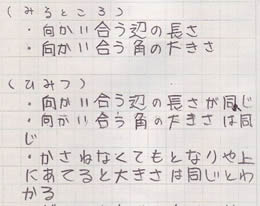 (みるところ)
・向かい合う辺の長さ
・向かい合う角の大きさ
(ひみつ)
・向かい合う辺の長さが同じ
・向かい合う角の大きさは同
じ
・かさねなくてもとなりや上
にあてると大きさは同じとわ
かる